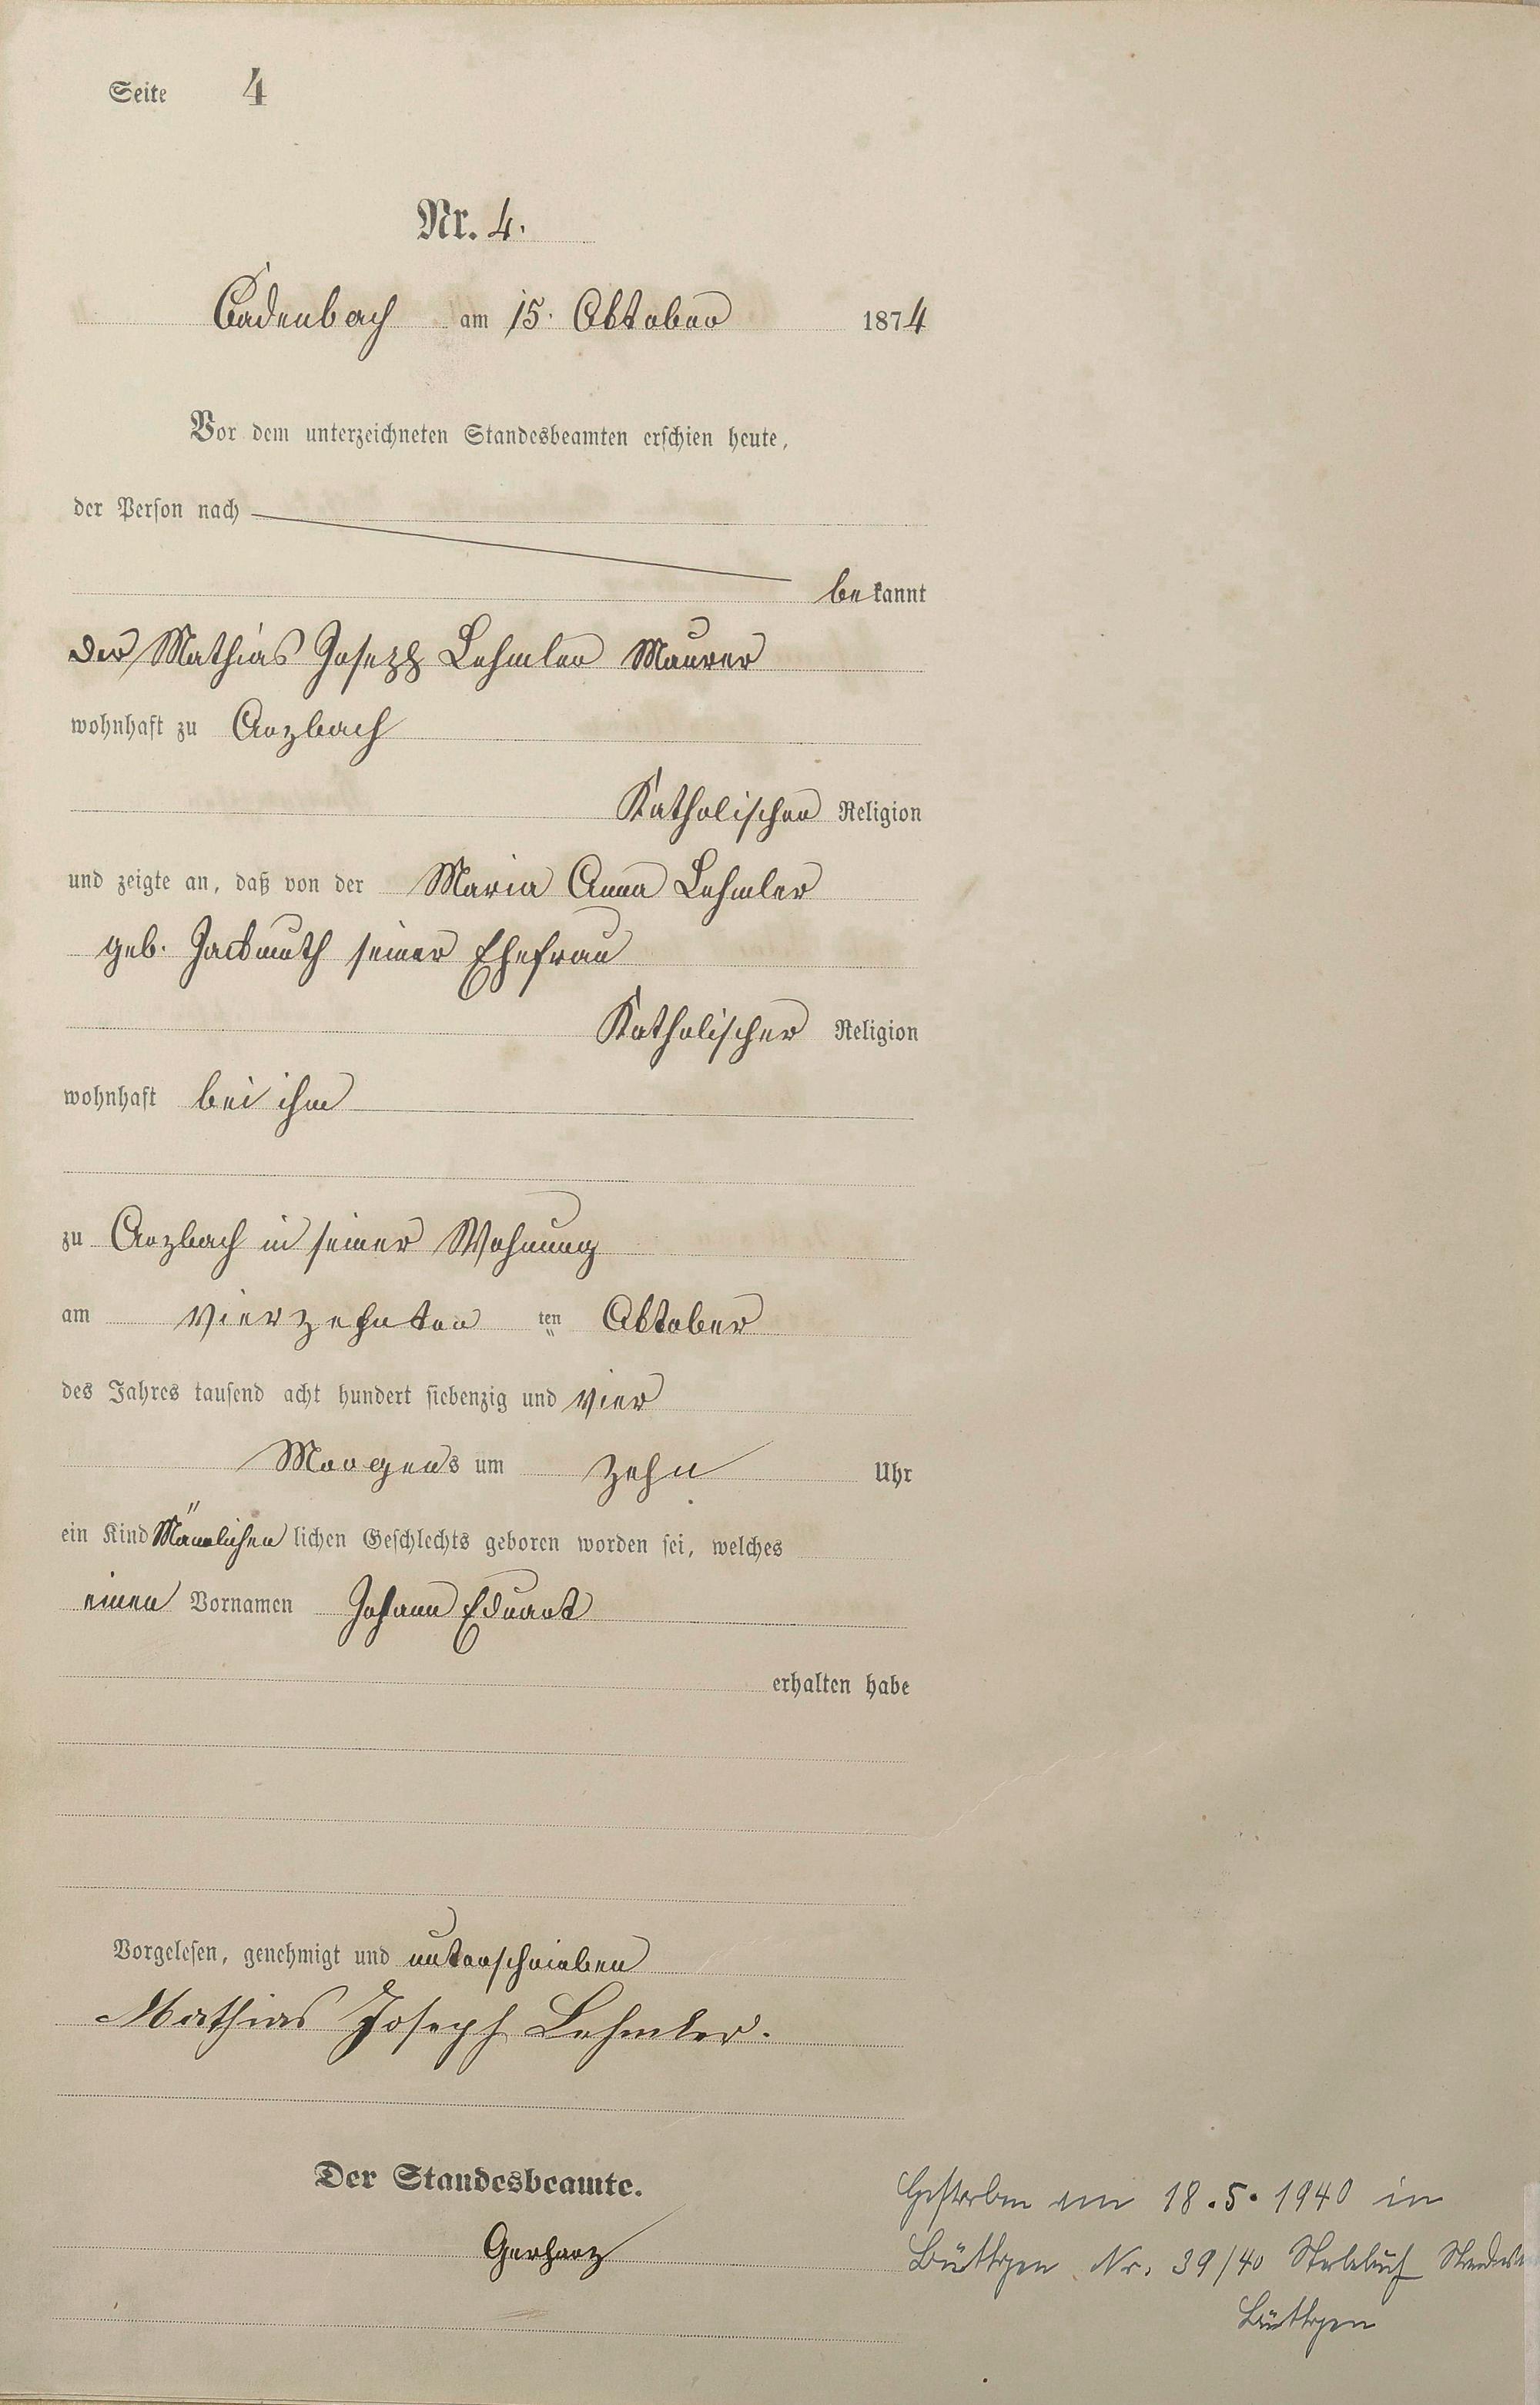 Seite 4
Nr. 4.
Cadenbach am 15. Oktober 1874
Vor dem unterzeichneten Standesbeamten erschien heute,
der Person nach
bekannt
der Mathias Joseph Lehmler Maurer
wohnhaft zu Arzbach
Katholischer Religion
und zeigte an, daß von der Maria Anna Lehmler
geb. Jackmuth seiner Ehefrau
Katholischer Religion
wohnhaft bei ihm
zu Arzbach in seiner Wohnung
am vierzehnten ten Oktober
des Jahres tausend acht hundert siebenzig und vier
Morgens um zehn Uhr
ein Kind Mänlichen lichen Geschlechts geboren worden sei, welches
einen Vornamen Johann Eduart
erhalten habe
Vorgelesen, genehmigt und unterschrieben
Mathias Joseph Lehmler.
Der Standesbeamte.
Gerharz
Gestorben am 18.5.1940 in
Büttgen Nr. 39/40 Sterbebuch
Büttgen